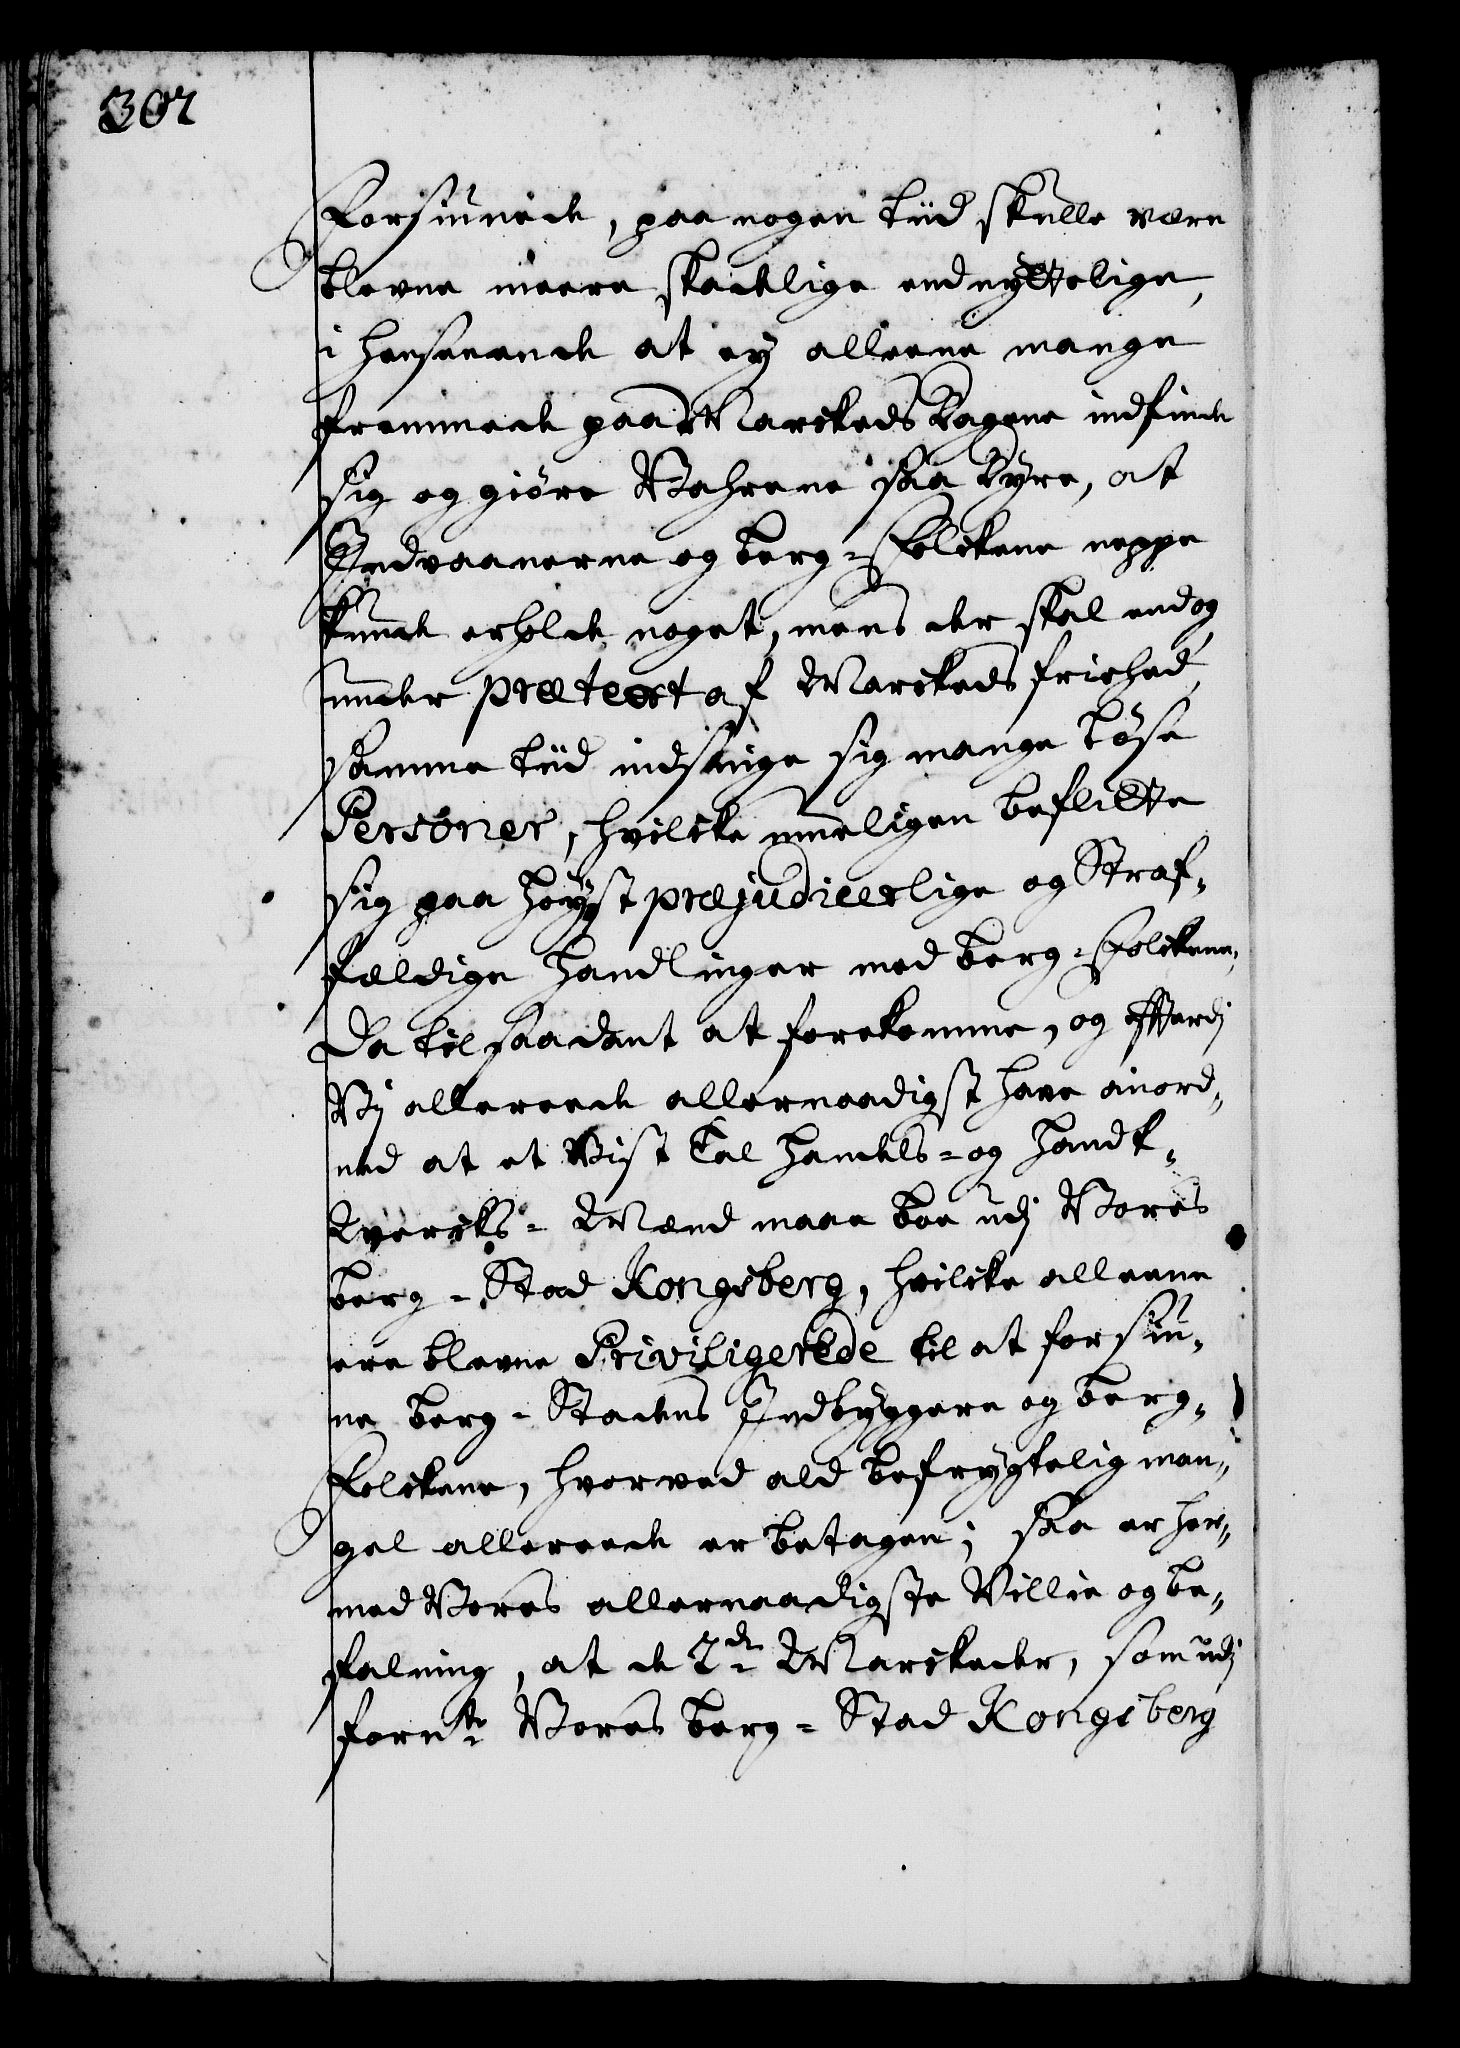 302
Forsiunede, paa nogen tiid skulle være
blevne meere skadelige end nyttelige,
i henseende at ey alleene mange
fremmede paa Markeds Dagene indfinde
sig og giøre Vahrene saa dyre, at
Indvaanerne og berg-Folckene neppe
kunde erholde noget, mens der skal endog
under prætext af Marckeds friehed,
samme tiid indsnige sig mange løse
Personer, hvilcke numeligen beflitte
sig paa høyst præjudicerlige og Straf-
fældige handlinger med berg-Folckene,
Da til saadant at forekomme, og efterdj
Vj allereede allernaadigst have anord-
ned at et vist Tal handels- og handt-
Vercks-Mænd maae boe udj Vores
berg-Stad Kongsberg, hvilcke alleene
ere blevne Priviligerede til at forsiu-
ne berg-Stadens Indbyggere og berg-
Folckene, hvorved ald befrygtelig man-
gel allereede er betagen; saa er her-
med Vores allernaadigste Villie og be-
falning, at de 2de Marckeder, som udj
fornte Vores berg-Stad Kongsberg